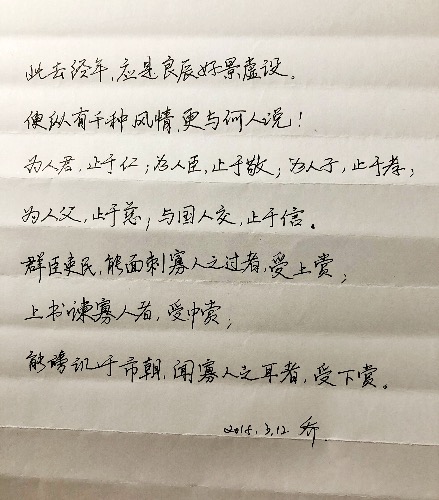 此去经年,应是良辰好景虚设。
便纵有千种风情,更与何人说!
为人君,止于仁;为人臣,止于敬;为人子,止于孝;
为人父,止于慈;与国人交,止于信。
群臣吏民,能面刺寡人之过者,受上赏;
上书谏寡人者,受中赏;
能谤讥于市朝,闻寡人之耳者,受下赏。
2015.3.12 乔